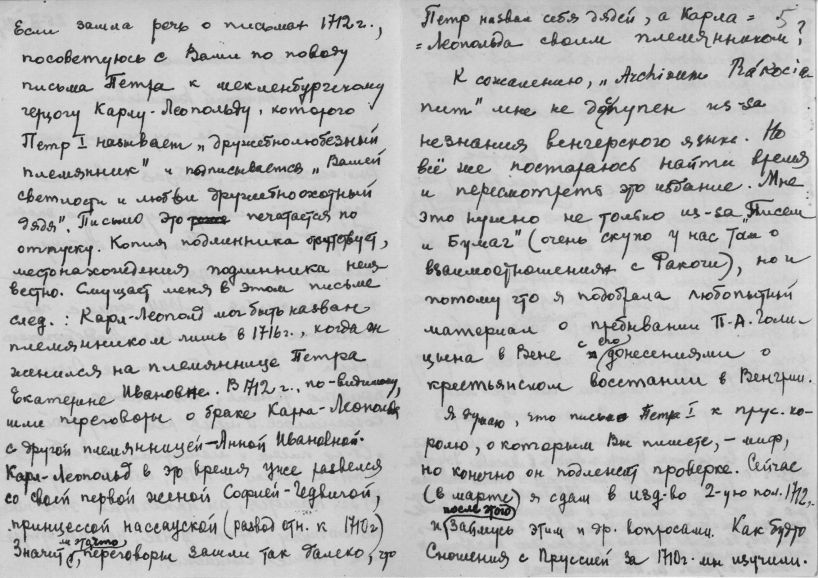 Если зашла речь о письмах 1712 г.,
посоветуюсь с Вами по поводу
письма Петра к мекленбургскому
герцогу Карлу-Леопольду, которого
Петр I называет „дружебнолюбезный
племянник" и подписывается „Вашей
светлости и любви дружебноохотный
дядя". Письмо это печатается по
отпуску. Копия подлинника отсутствует,
местонахождения подлинника неиз
вестно. Смущает меня в этом письме
след.: Карл-Леопольд мог быть назван
племянником лишь в 1716 г., когда он
женился на племяннице Петра
Екатерине Ивановне. В 1712 г., по-видимому,
шли переговоры о браке Карла-Леопольда
с другой племянницей – Анной Ивановной.
Карл-Леопольд в это время уже развелся
со своей первой женой Софией-Гедвигой,
принцессой нассауской (развод отн. к 1710 г)
Значит, переговоры зашли так далеко, что
Петр назвал себя дядей, а Карла =
= Леопольда своим племянником?
5
К сожалению, „Archivum Rákoczia
num" мне не доступен из-за
незнания венгерского языка. Но
всё же постараюсь найти время
и пересмотреть это издание. Мне
это нужно не только из-за „Писем
и Бумаг" (очень скупо у нас там о
взаимоотношениях с Ракочи), но и
потому что я подобрала любопытный
материал о пребывании П.А. Голи-
цына в Вене с его донесениями о
крестьянском восстании в Венгрии.
Я думаю, что письмо Петра I к прус. ко-
ролю, о котором Вы пишете, – миф,
но конечно он подлежит проверке. Сейчас
(в марте) я сдам в изд-во 2-ую пол. 1712,
и после этого займусь этим и др. вопросами. Как будто
Сношения с Пруссией за 1710 г. мы изучили.